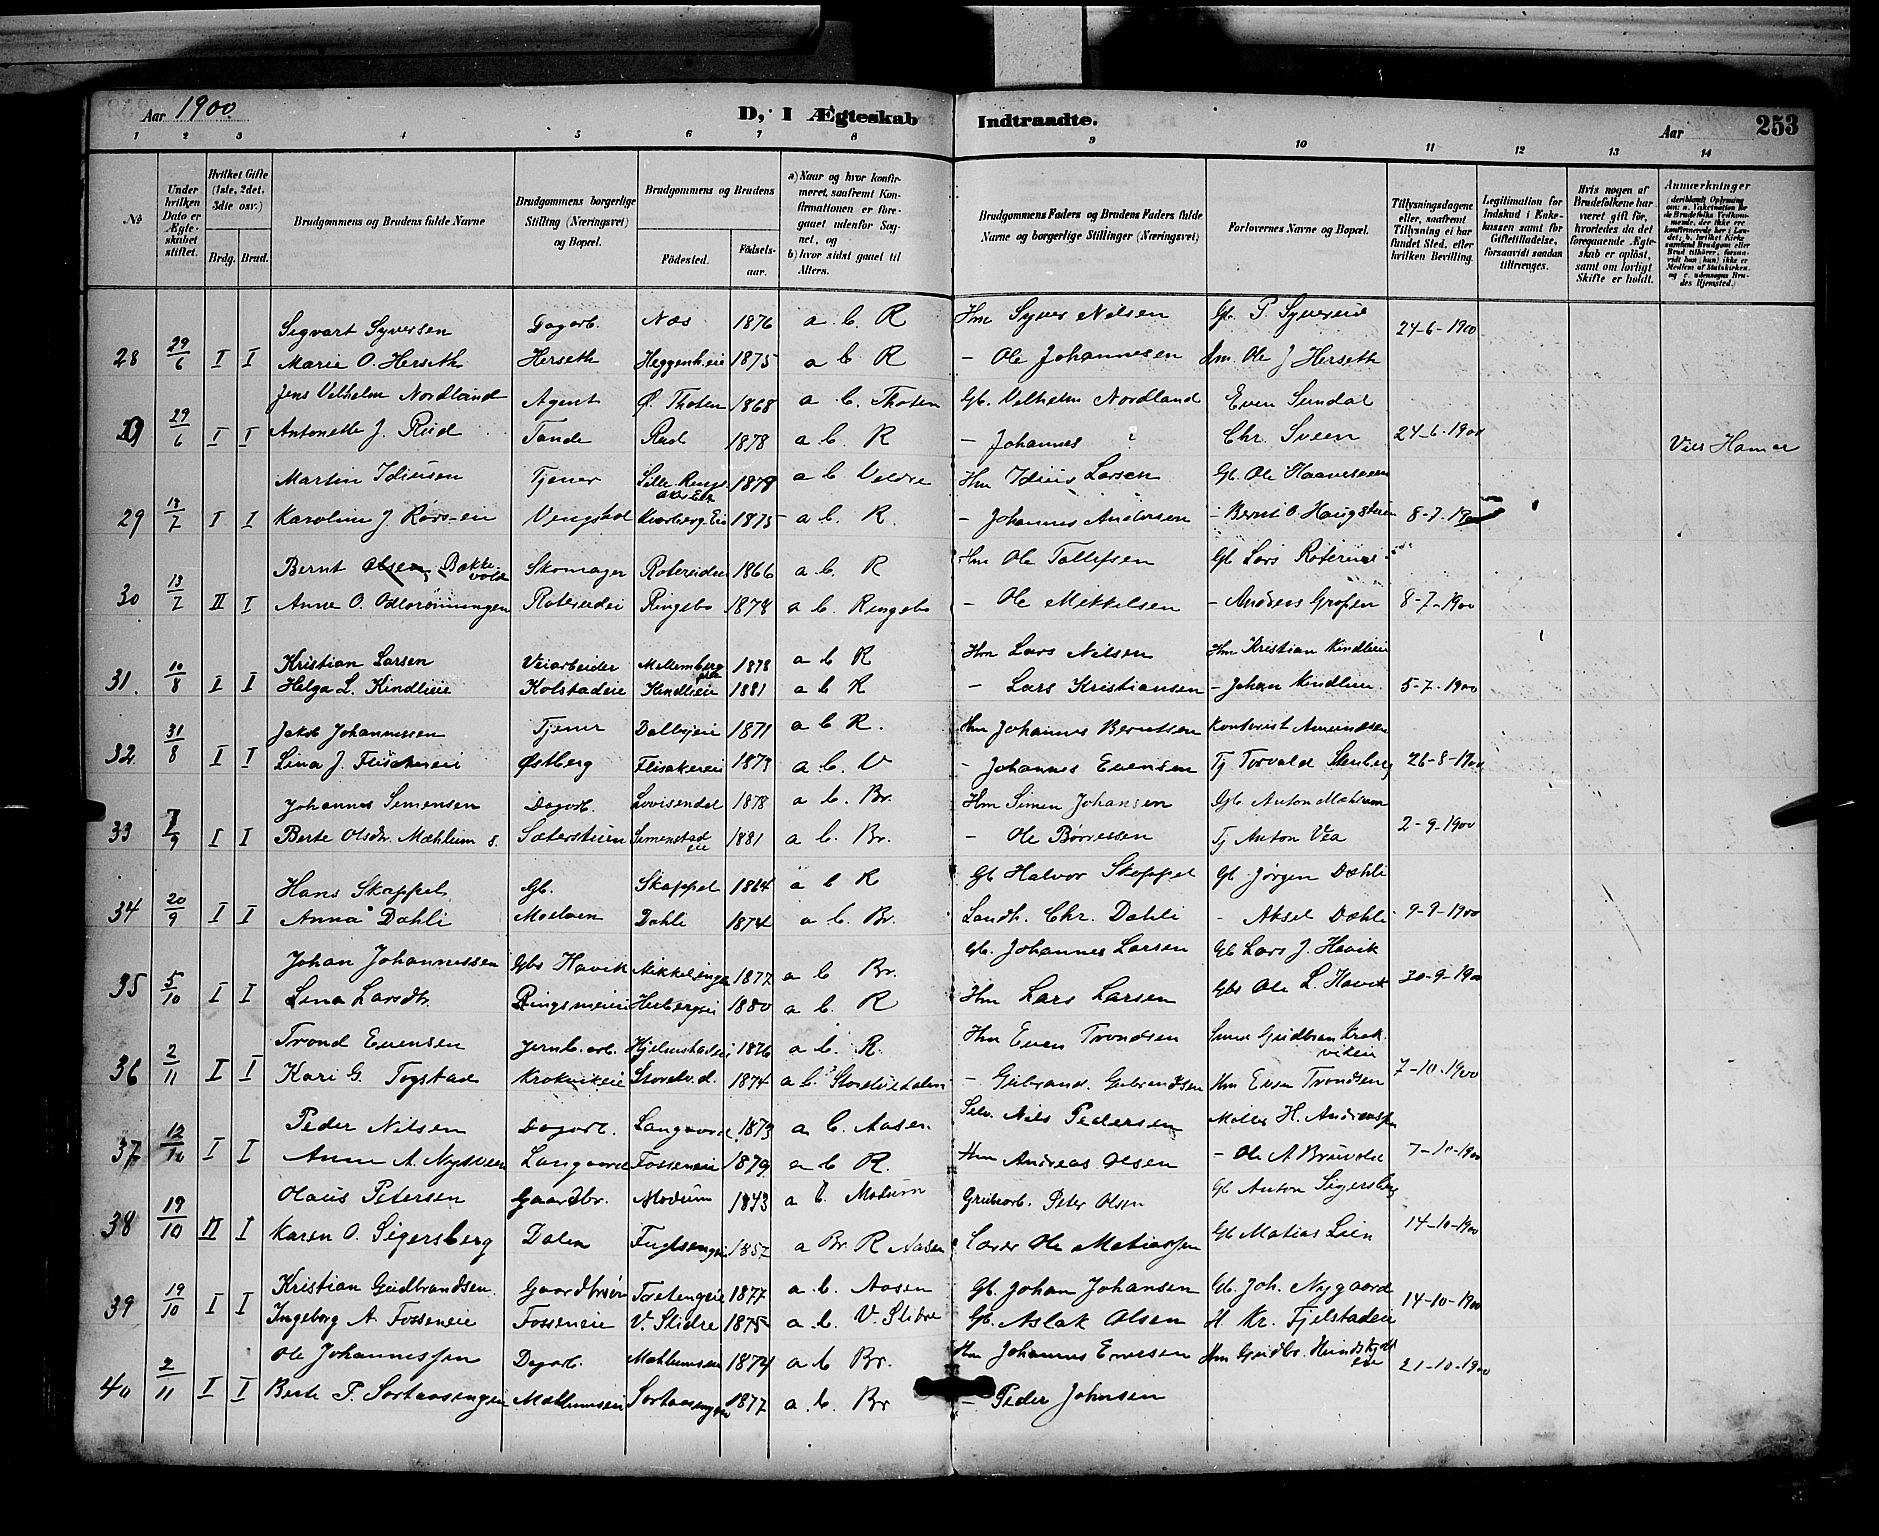 Aar 1900. D, I Ægteskab Indtraadte. Aar 253
1 2 3 4 5 6 7 8 9 10 11 12 13 14
No
Under hvilken Dato er Ægteskabet stiftet.
Hvilket Gifte (1ste, 2det, 3die osv.)
Brdg. Brud.
Brudgommens og Brudens fulde Navne
Brudgommens borgerlige Stilling (Næringsvei) og Bopæl.
Brudgommens og Brudens
Fødested. Fødselsaar.
a) Naar og hvor konfirmeret, saafremt Konfirmationen er foregaaet udenfor Sognet, og
b) hvor sidst gaaet til Alters.
Brudgommens Faders og Brudens Faders fulde Navne og borgerlige Stillinger (Næringsvei)
Forlovernes Navne og Bopæl.
Tillysningsdagene eller, saafremt Tillysning ei har fundet Sted, efter hvilken Bevilling.
Legitimation for Indskud i Enkekassen samt for Giftetilladelse, forsaavidt saadan tiltrænges.
Hvis nogen af Brudefolkene har været gift før, hvorledes da det foregaaende Ægteskab er opløst, samt om lovligt Skifte er holdt.
Anmærkninger
Segvart Syversen Dagarb. Næs 1876 a. b. R Hm Syver Nilsen Gb. P Syverud 24-6-1900
28 29/6 I I Marie O. Herseth Herseth Heggenh.eie 1875 a b R - Ole Johannesen Hm. Ole J Herseth
Jens Vilhelm Nordland Agent Ø. Thoten 1868 a b. Thoten Gb. Vilhelm Nordland Even Sundal
29/6 I I Antonette J. Rud Tande Rud 1878 a b. R - Johannes Chr. Sveen 24-6-1900 Viet Hamar
Martin Idiusen Tjener 1878 a b Veldre Hm Idius Larsen Gb Ole Haavesveen
29 13/7 I I Karoline J Røs-eie Vengstad Kvarberg Eie 1875 a b. R. - Johannes Andersen - Bernt O. Haugsteen 8-7-1900
Bernt Olsen Bakkevold Skomager Rotereiden 1866 a b. R Hm Ole Tollefsen Gb Lars
30 13/7 II I Anne O. Odlorønningen Ringebo 1878 a b. Ringebo - Ole Mikkelsen - Anders Grosen 8-7-1900
Kristian Larsen Veiarbeider Mellemberg eie 1878 a b R Hm Lars Nilsen Hm Kristian Kindlieie
31. 10/8 I I Helga L. Kindlieie Kolstadeie Kindlieie 1881 a b R - Lars Kristiansen - Johan Kindlien. 5-7-1900
Jakob Johannessen Tjener Dalbyeie 1871 a b R. Hm Johannes Berntsen Kontorist Amundsen
32. 31/8 I I Lina J. Flisakereie Østberg Flisakereie 1879 a b. V - Johannes Evensen Tj Torvald Stenberg 26-8-1900
Johannes Simensen Dagarb. Lovisendal 1878 a b. Br. Hm Simen Johansen Gb Anton Mæhlum
33 7/9 I I Berte Olsdtr. Mæhlum s. Sæterstuen Simenstad eie 1881 a b. Br. - Ole Børresen Tj Anton Vea 2-9-1900
Hans Skappel Gb. Skappel 1864 a b R Gb Halvor Skappel Gb Jørgen Dæhli
34 20/9 I I Anna Dæhli Moelven Dæhli 1874 a b. Br. Landh. Chr. Dæhli - Aksel Dæhli 9-9-1900
Johan Johannessen Gbs Havik 1877 a b Br. Gb. Johannes Larsen Gb Lars J. Havik
35 5/10 I I Lina Larsdtr. Ringsmeieie Herbergeie 1880 a b R Hm Lars Larsen Gbs Ole L. Havik 30-9-1900
Trond Evensen Jernb.arb. Hjelmstadeie 1876 a b. R. Hm Even Trondsen Smed Gudbran Krokvikeie
36 2/11 I I Kari G. Togstad Krokvikeie Storelv.d. 1874 a b. Storelvedalen - Gubrand. Gubrandsen Hm Even Trondsen 7-10-1900
Peder Nilsen Dagarb. Langaard 1873 a b. Aasen Selv. Nils Pedersen Møller H. Andreassen
37 12/10 I I Anne A. Nysveen Langaard Fosseneie 1879 a b R. Hm Andreas Olsen - Ole A Bruvold 7-10-1900
Olaus Petersen Gaardbr. Modum 1843 a b. Modum Grubearb. Peter Olsen Gb Anton Sigersberg
38 19/10 II I Karen O. Sigersberg Dalen Fuglsengeie 1857 a Br R Aasen Ole Matiassen Gb Matias Lien 14-10-1900
Kristian Gudbrandsen. Gaardbrsøn Toretengeie 1877 a b. Aasen Gb. Johan Johansen Gb. Joh. Nygaard
39 19/10 I I Ingeborg A. Fosseneie Fosseneie V. Slidre 1875 a b. V. Slidre Gb. Aslak Olsen H Kr. Fjelstadeie 14-10-1900
Ole Johannessen Dagarb. Mæhlumseie 1874 a b Br. Hm Johannes Evensen Hm Gudbr. 21-10-1900
40 2/11 I I Berte P. Sortaasengen Mæhlumseie Sortaasengen 1877 a. b. Br - Peder Johnsen